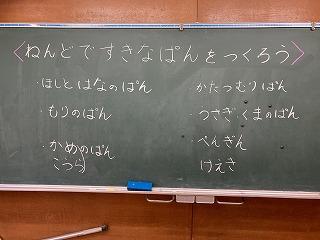 〈ねんどですきなぱんをつくろう〉
・ほしとはなのぱん
・もりのぱん
・かめのぱん
こうら
・かたつむりぱん
・うさぎ・くまのぱん
・ぺんぎん
けえき